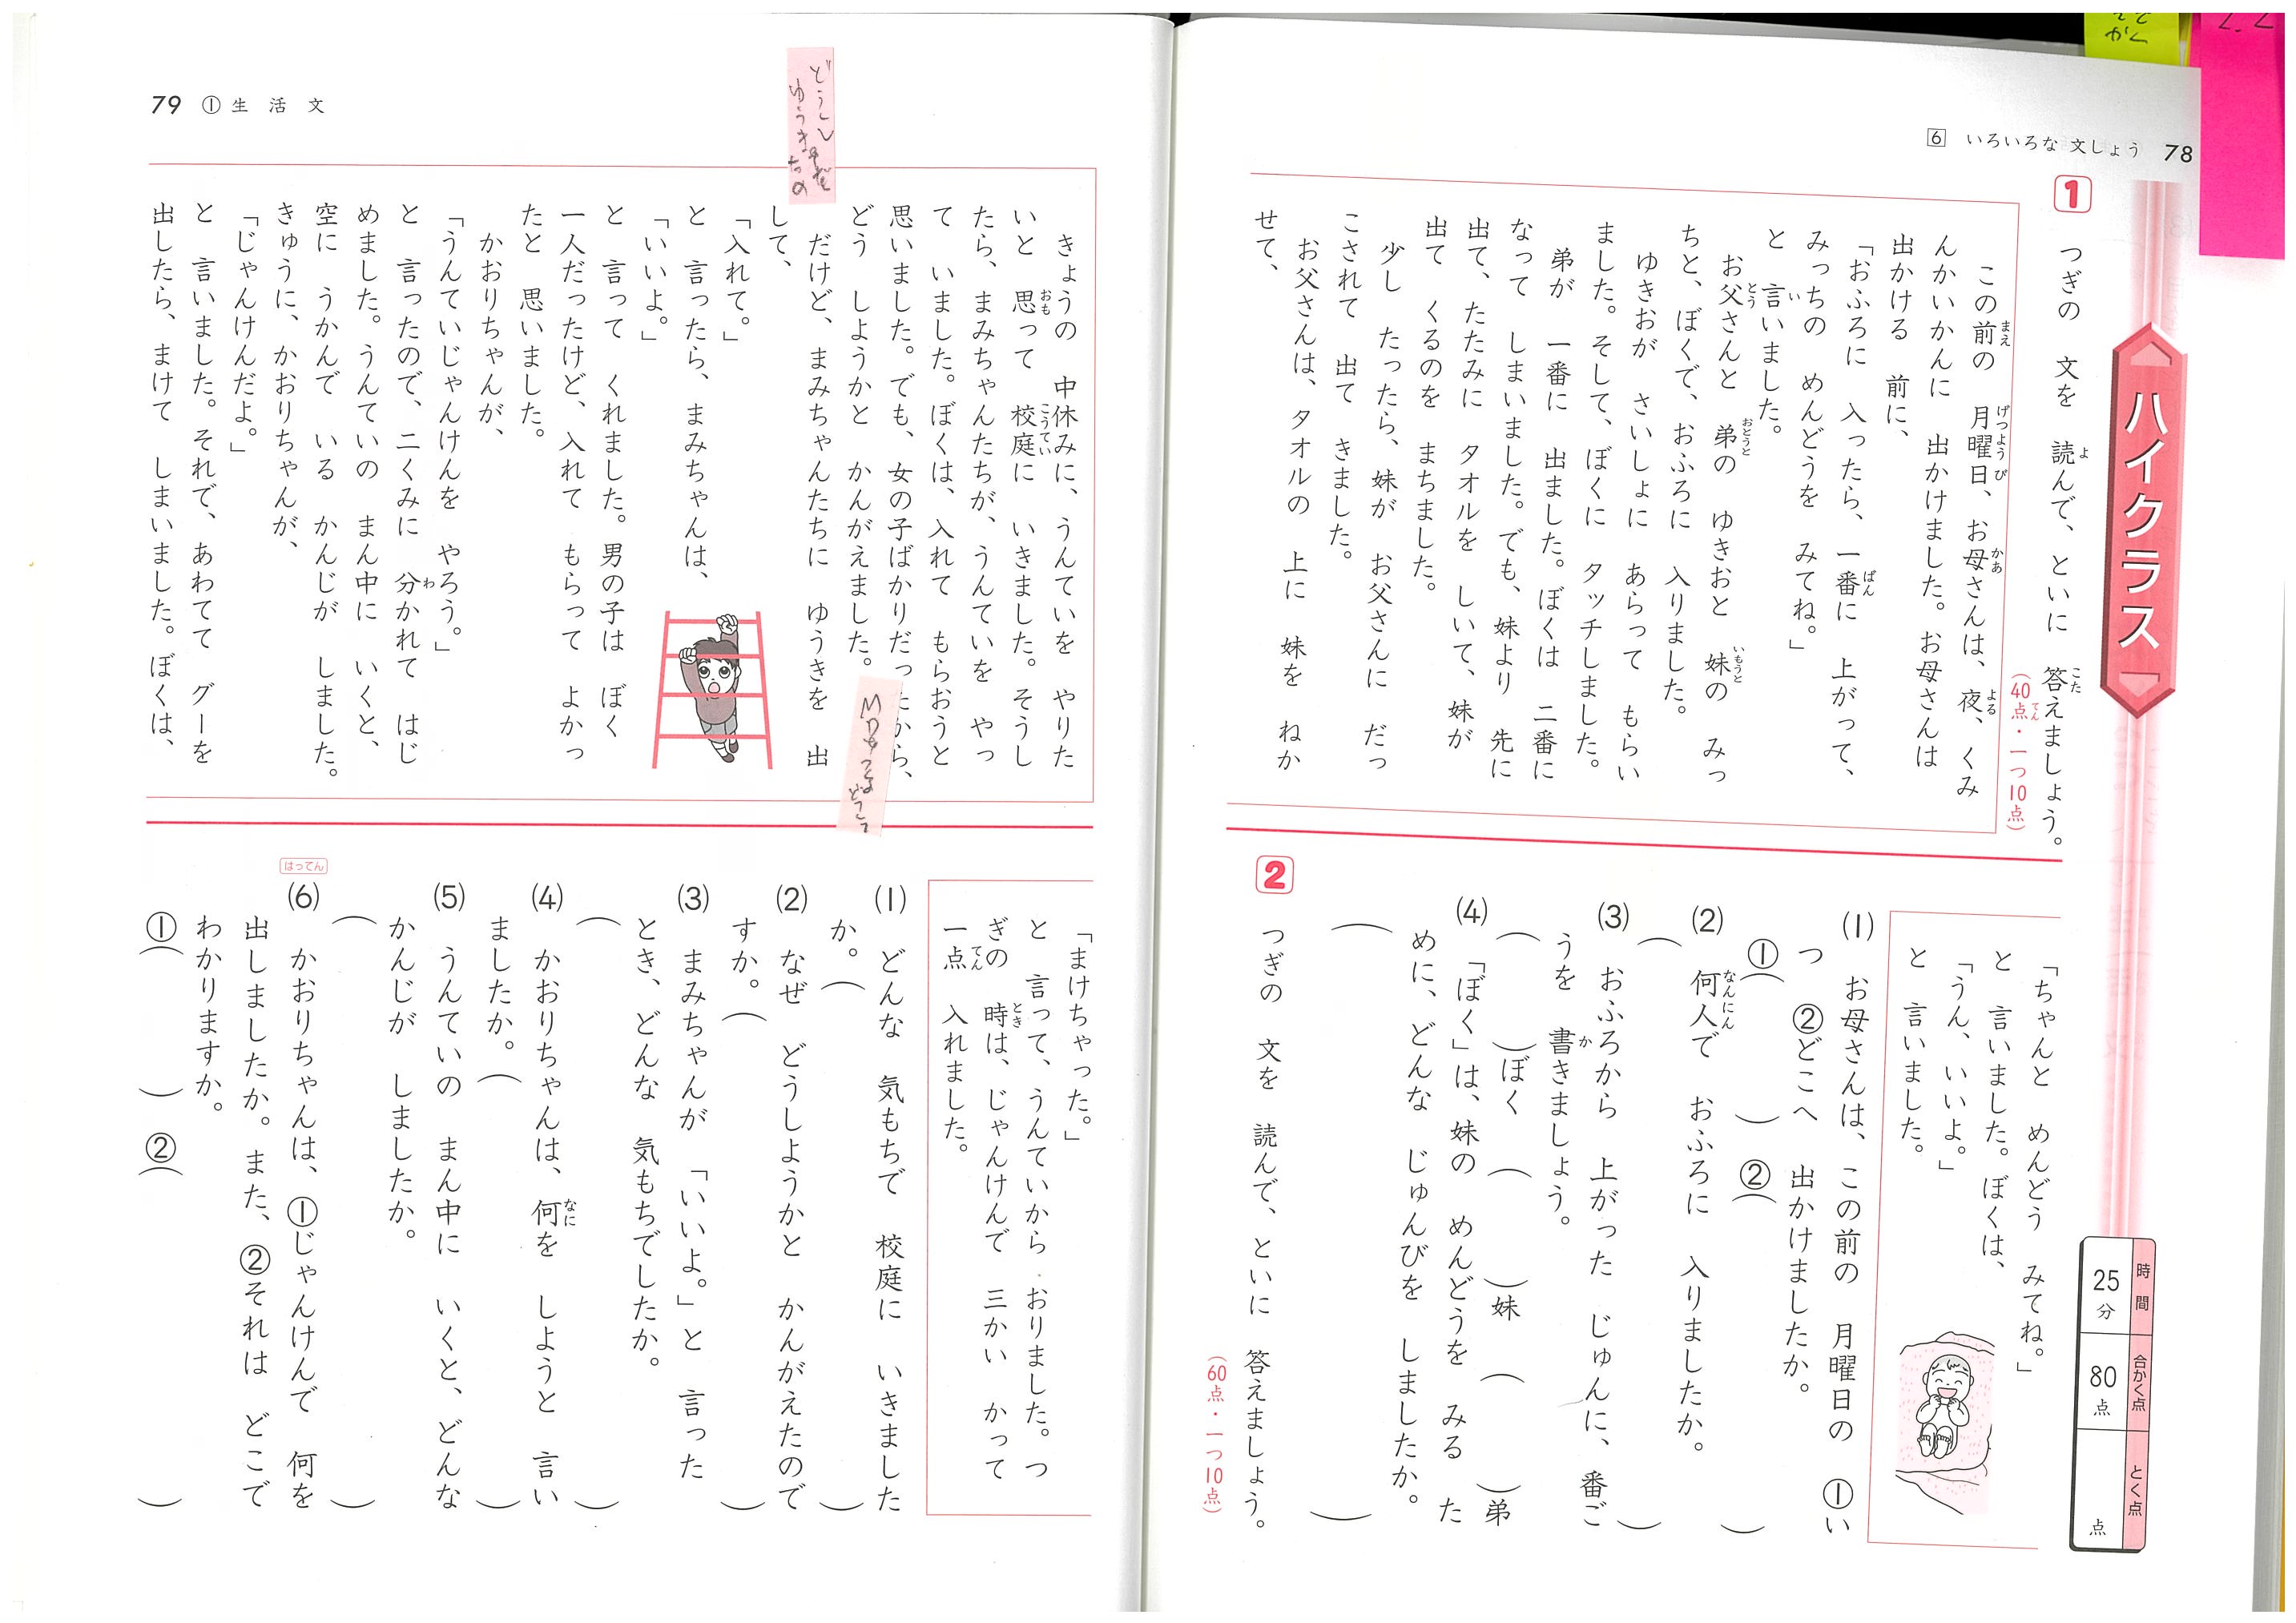 6 いろいろな 文しょう 78
ハイクラス
時間 25分
合かく点 80点
とく点 点
1 つぎの 文を 読んで、といに 答えましょう。
(40点・一つ10点)
この前の 月曜日、お母さんは、夜、くみ
んかいかんに 出かけました。お母さんは
出かける 前に、
「おふろに 入ったら、一番に 上がって、
みっちの めんどうを みてね。」
と 言いました。
お父さんと 弟の ゆきおと 妹の みっ
ちと、ぼくで、おふろに 入りました。
ゆきおが さいしょに あらって もらい
ました。そして、ぼくに タッチしました。
弟が 一番に 出ました。ぼくは 二番に
なって しまいました。でも、妹より 先に
出て、たたみに タオルを しいて、妹が
出て くるのを まちました。
少し たったら、妹が お父さんに だっ
こされて 出て きました。
お父さんは、タオルの 上に 妹を ねか
せて、
「ちゃんと めんどう みてね。」
と 言いました。ぼくは、
「うん、いいよ。」
と 言いました。
(1) お母さんは、この前の 月曜日の ①い
つ ②どこへ 出かけましたか。
①( ) ②( )
(2) 何人で おふろに 入りましたか。
( )
(3) おふろから 上がった じゅんに、番ご
うを 書きましょう。
( )ぼく ( )妹 ( )弟
(4) 「ぼく」は、妹の めんどうを みる た
めに、どんな じゅんびを しましたか。
( )
2 つぎの 文を 読んで、といに 答えましょう。
(60点・一つ10点)
79 ①生活文
きょうの 中休みに、うんていを やりた
いと 思って 校庭に いきました。そうし
たら、まみちゃんたちが、うんていを やっ
て いました。ぼくは、入れて もらおうと
思いました。でも、女の子ばかりだったから、
どう しようかと かんがえました。
だけど、まみちゃんたちに ゆうきを 出
して、
「入れて。」
と 言ったら、まみちゃんは、
「いいよ。」
と 言って くれました。男の子は ぼく
一人だったけど、入れて もらって よかっ
たと 思いました。
かおりちゃんが、
「うんていじゃんけんを やろう。」
と 言ったので、二くみに 分かれて はじ
めました。うんていの まん中に いくと、
空に うかんで いる かんじが しました。
きゅうに、かおりちゃんが、
「じゃんけんだよ。」
と 言いました。それで、あわてて グーを
出したら、まけて しまいました。ぼくは、
「まけちゃった。」
と 言って、うんていから おりました。つ
ぎの 時は、じゃんけんで 三かい かって
一点 入れました。
(1) どんな 気もちで 校庭に いきました
か。( )
(2) なぜ どうしようかと かんがえたので
すか。( )
(3) まみちゃんが 「いいよ。」と 言った
とき、どんな 気もちでしたか。
( )
(4) かおりちゃんは、何を しようと 言い
ましたか。( )
(5) うんていの まん中に いくと、どんな
かんじが しましたか。
( )
はってん
(6) かおりちゃんは、①じゃんけんで 何を
出しましたか。また、②それは どこで
わかりますか。
①( ) ②( )